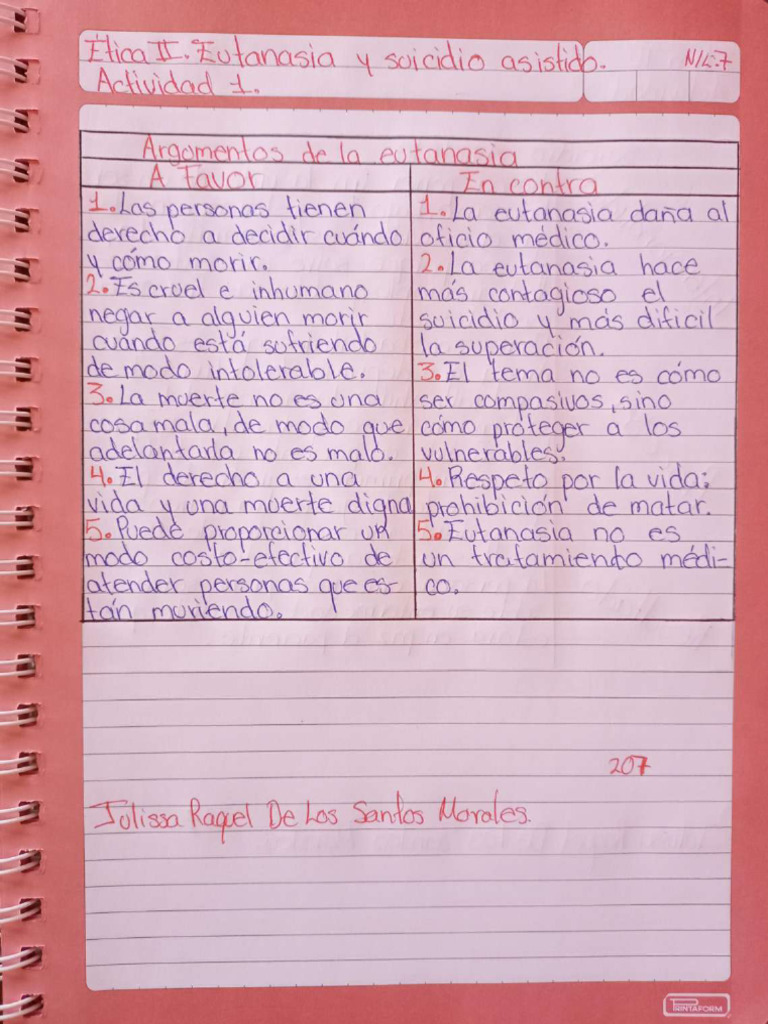 Ética II. Eutanasia y suicidio asistido.
N/L:7
Actividad 1.
Argumentos de la eutanasia
A Favor
En contra
1. Las personas tienen
derecho a decidir cuándo
y cómo morir.
2. Es cruel e inhumano
negar a alguien morir
cuándo está sufriendo
de modo intolerable.
3. La muerte no es una
cosa mala, de modo que
adelantarla no es malo.
4. El derecho a una
vida y una muerte digna
5. Puede proporcionar un
modo costo-efectivo de
atender personas que es-
tán muriendo.
1. La eutanasia daña al
oficio médico.
2. La eutanasia hace
más contagioso el
suicidio y más dificil
la superación.
3. El tema no es cómo
ser compasivos, sino
cómo proteger a los
vulnerables.
4. Respeto por la vida:
prohibición de matar.
5. Eutanasia no es
un tratamiento médi-
co.
207
Julissa Raquel De Los Santos Morales.
PRINTAFORM